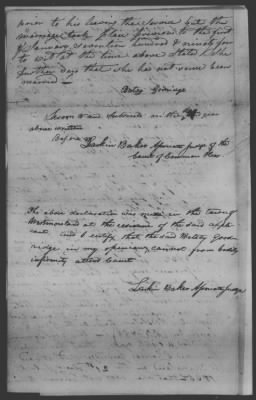 prior to his leaving the service but the
marriage took place previous to the first
of January seventeen hundred & ninety four
to wit at the time above stated & She
further says that she has not since been
married —
Betsy Goodridge
Sworn to and subscribed on the day & year
above written
Before me
Larkin Baker Associate judge of the
Court of Common Pleas
The above declaration was made in the town of
Westmoreland at the residence of the said appli
cant and I certify that the said Betsey Good
ridge in my opinion cannot from bodily
infirmity attend Court
Larkin Baker Associate judge